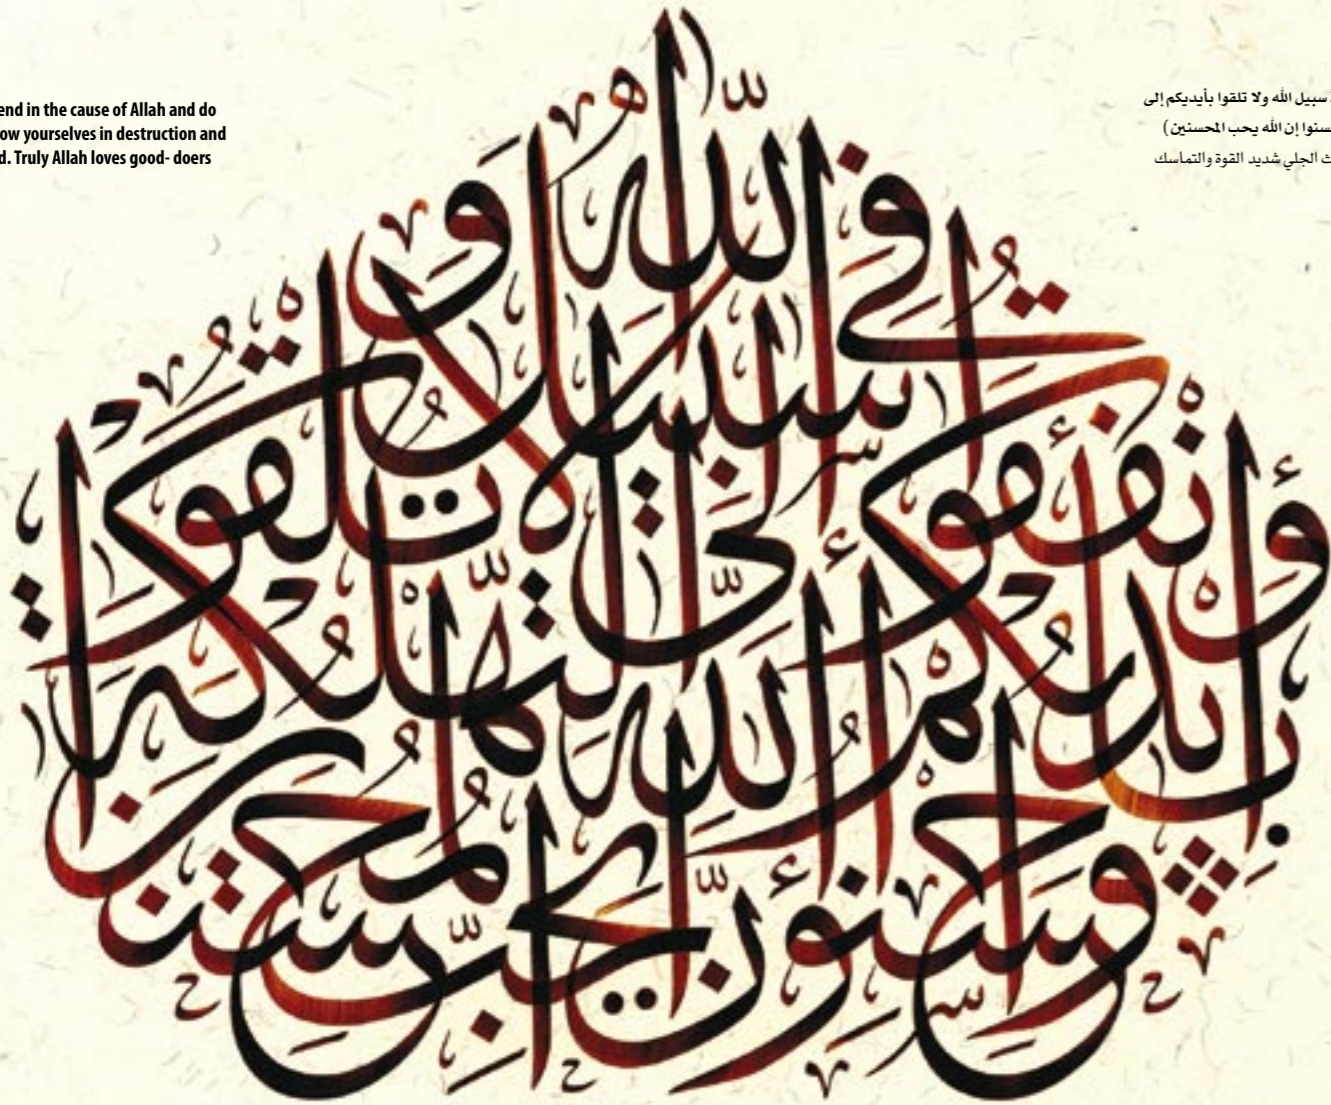 end in the cause of Allah and do
ow yourselves in destruction and
d. Truly Allah loves good- doers
سبيل الله ولا تلقوا بأيديكم إلى
سنوا إن الله يحب المحسنين)
ث الجلي شديد القوة والتماسك
وأنفقوا في سبيل الله ولا تلقوا
بأيديكم إلى التهلكة
وأحسنوا إن الله يحب المحسنين